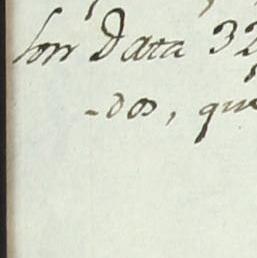 Data 32
-dos, que